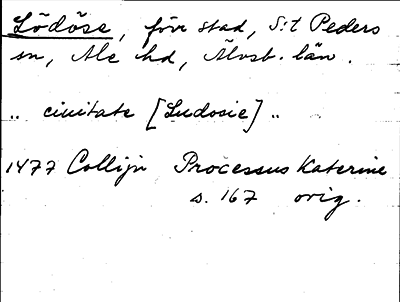 Lödöse, förr stad, S:t Peders
sn, Ale hd, Älvsb. län.
.. ciuitate [Ludosie] ..
1477 Collijn Processus Katerine
s. 167 orig.